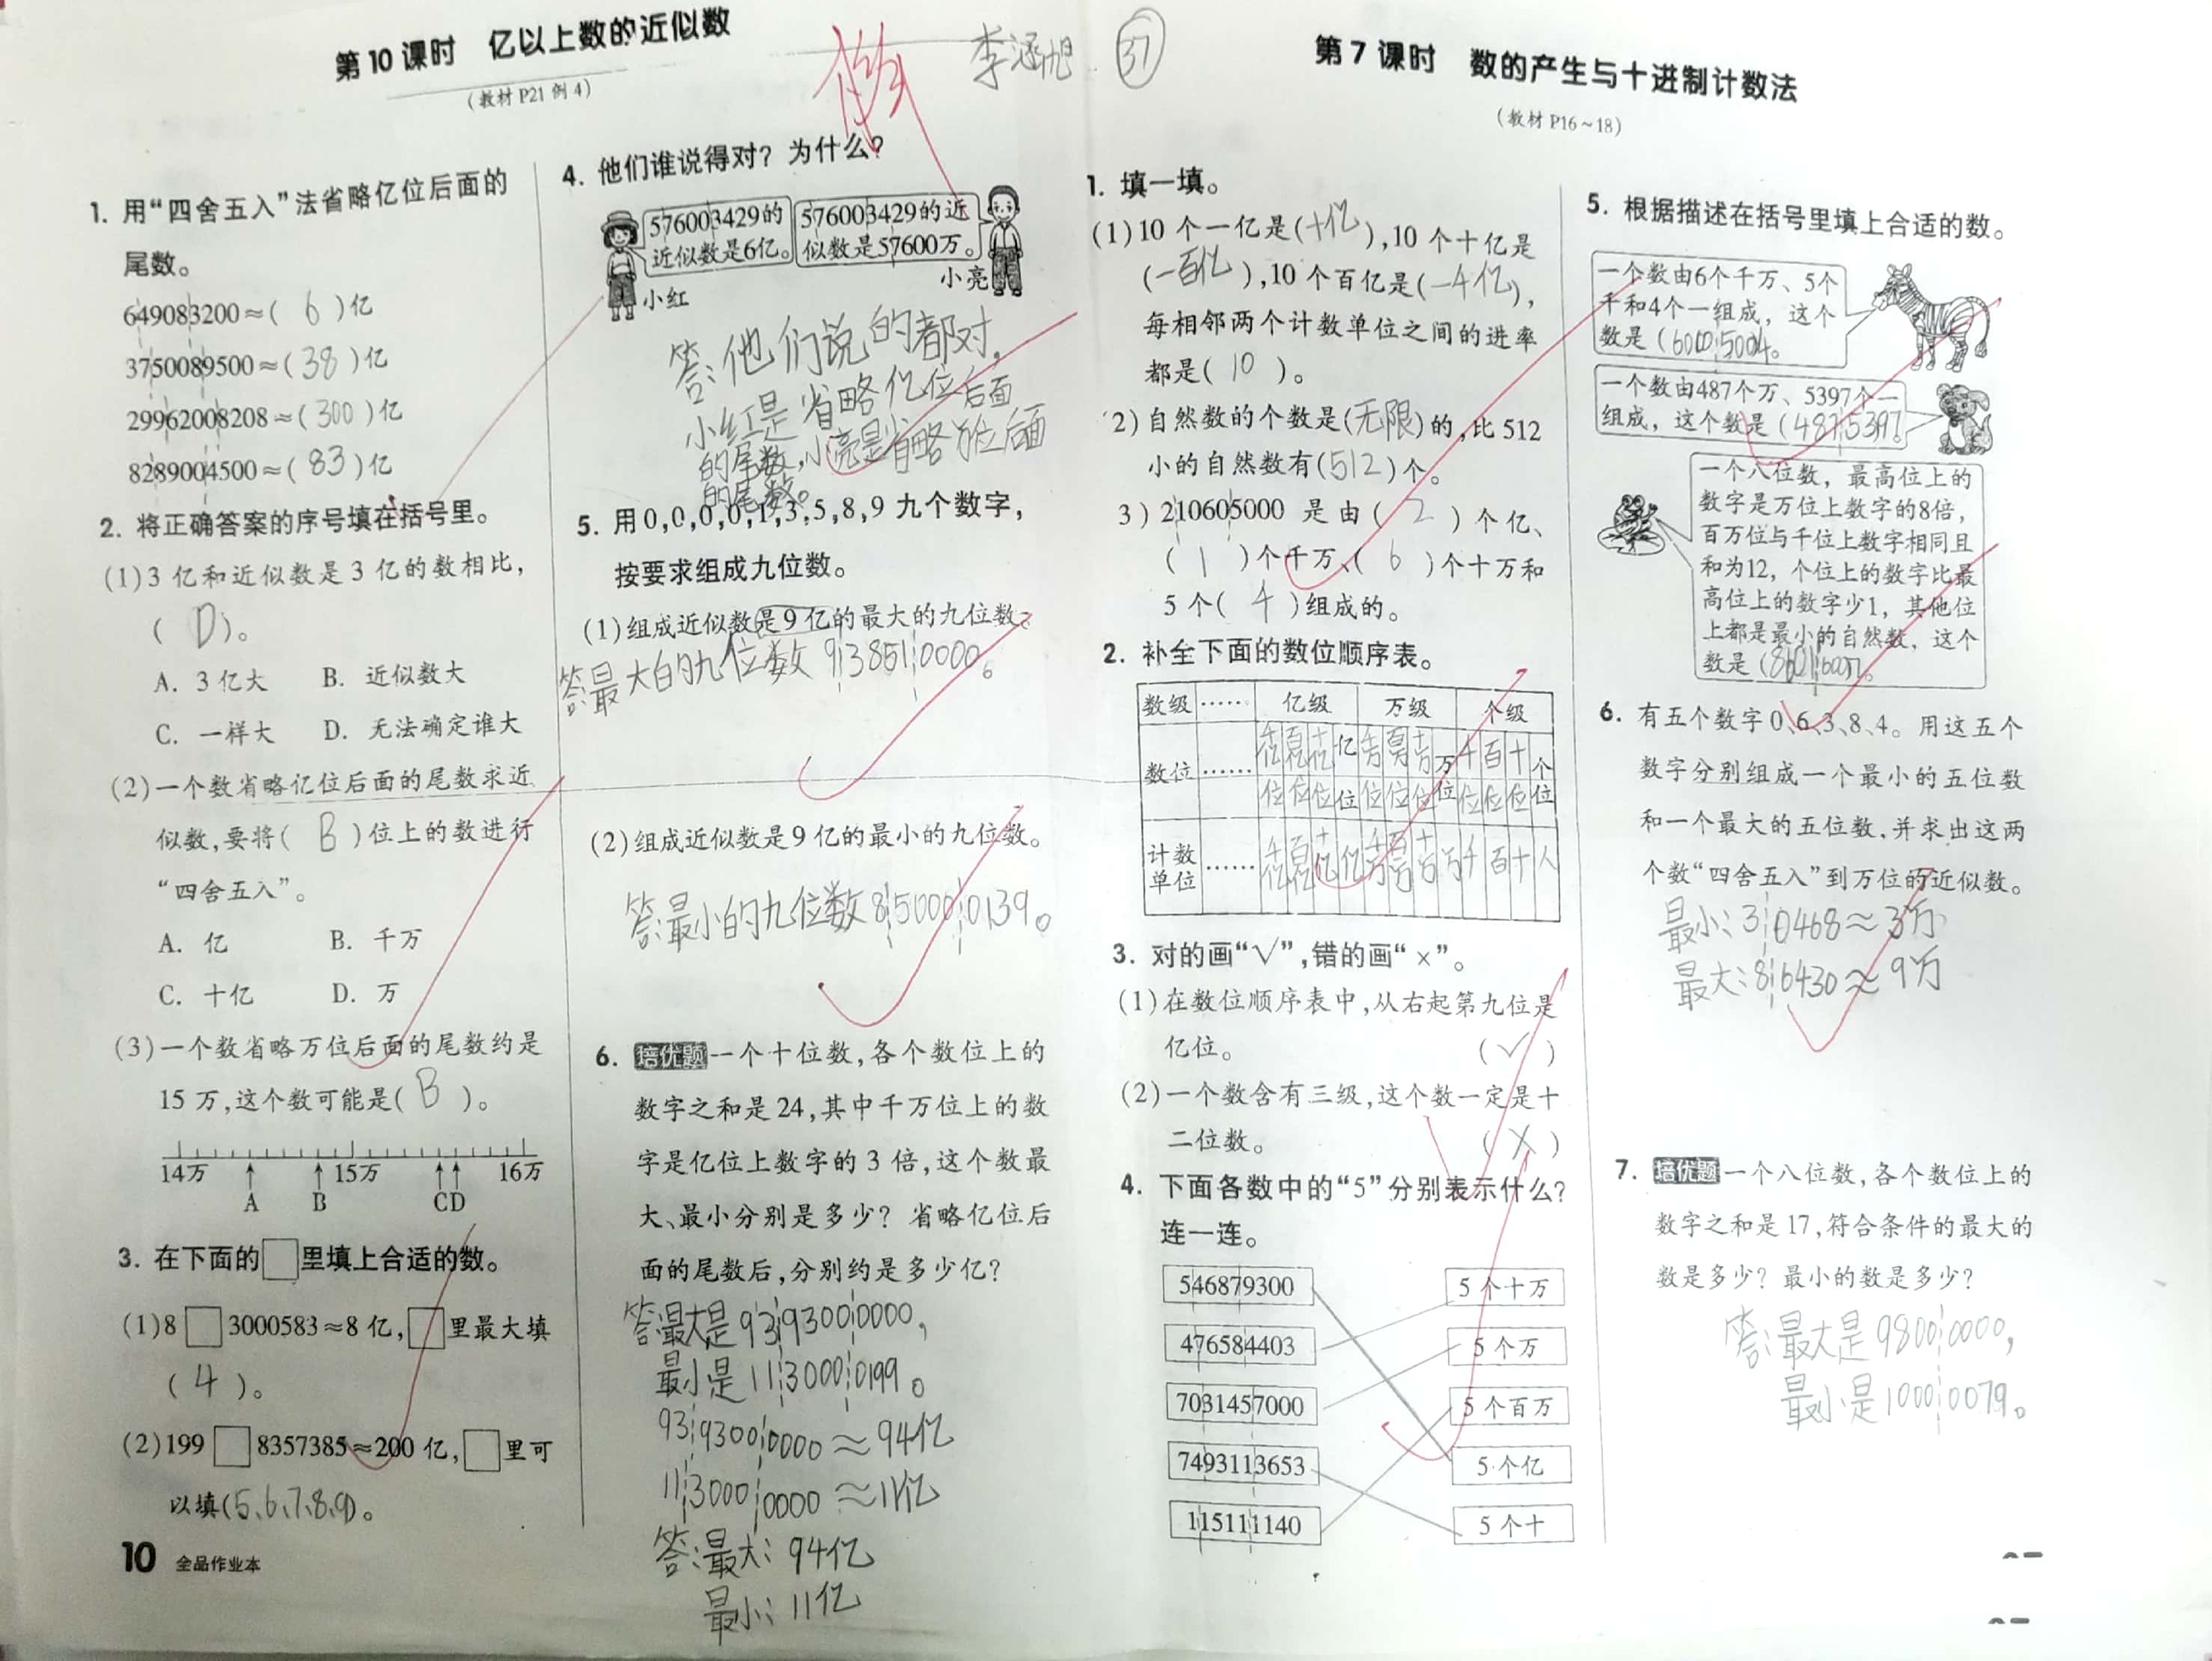 第10课时 亿以上数的近似数
(教材P21例4)
李涵旭 37
1. 用“四舍五入”法省略亿位后面的
尾数。
649083200≈( 6 )亿
3750089500≈( 38 )亿
29962008208≈( 300 )亿
8289004500≈( 83 )亿
2. 将正确答案的序号填在括号里。
(1)3亿和近似数是3亿的数相比,
( D )。
A. 3亿大 B. 近似数大
C. 一样大 D. 无法确定谁大
(2)一个数省略亿位后面的尾数求近
似数,要将( B )位上的数进行
“四舍五入”。
A. 亿 B. 千万
C. 十亿 D. 万
(3)一个数省略万位后面的尾数约是
15万,这个数可能是( B )。
14万 15万 16万
A B C D
3. 在下面的□里填上合适的数。
(1)8□3000583≈8亿,□里最大填
( 4 )。
(2)199□8357385≈200亿,□里可
以填(5、6、7、8、9)。
10 全品作业本
4. 他们谁说得对?为什么?
576003429的
近似数是6亿。
小红
576003429的近
似数是57600万。
小亮
答:他们说的都对,
小红是省略亿位后面
的尾数,小亮是省略万位后面
的尾数。
5. 用0,0,0,0,1,3,5,8,9九个数字,
按要求组成九位数。
(1)组成近似数是9亿的最大的九位数。
答:最大的九位数938510000。
(2)组成近似数是9亿的最小的九位数。
答:最小的九位数850000139。
6. 培优题 一个十位数,各个数位上的
数字之和是24,其中千万位上的数
字是亿位上数字的3倍,这个数最
大、最小分别是多少?省略亿位后
面的尾数后,分别约是多少亿?
答:最大是9393000000,
最小是1130000199。
9393000000≈94亿
1130000000≈11亿
答:最大:94亿
最小:11亿
第7课时 数的产生与十进制计数法
(教材P16~18)
1. 填一填。
(1)10个一亿是(十亿),10个十亿是
(一百亿),10个百亿是(一千亿),
每相邻两个计数单位之间的进率
都是( 10 )。
2)自然数的个数是(无限)的,比512
小的自然数有(512)个。
3)210605000 是由( 2 )个亿、
( 1 )个千万、( 6 )个十万和
5个( 千 )组成的。
2. 补全下面的数位顺序表。
数级 …… 亿级 万级 个级
数位 …… 千亿位 百亿位 十亿位 亿位 千万位 百万位 十万位 万位 千位 百位 十位 个位
计数单位 …… 千亿 百亿 十亿 亿 千万 百万 十万 万 千 百 十 个
3. 对的画“√”,错的画“×”。
(1)在数位顺序表中,从右起第九位是
亿位。 (√)
(2)一个数含有三级,这个数一定是十
二位数。 (×)
4. 下面各数中的“5”分别表示什么?
连一连。
546879300 5个十万
476584403 5个万
7031457000 5个百万
7493113653 5个亿
115111140 5个十
5. 根据描述在括号里填上合适的数。
一个数由6个千万、5个
千和4个一组成,这个
数是(60005004。
一个数由487个万、5397个一
组成,这个数是(4875397。
一个八位数,最高位上的
数字是万位上数字的8倍,
百万位与千位上数字相同且
和为12,个位上的数字比最
高位上的数字少1,其他位
上都是最小的自然数,这个
数是(86016007。
6. 有五个数字0、6、3、8、4。用这五个
数字分别组成一个最小的五位数
和一个最大的五位数,并求出这两
个数“四舍五入”到万位的近似数。
最小:30468≈3万
最大:86430≈9万
7. 培优题 一个八位数,各个数位上的
数字之和是17,符合条件的最大的
数是多少?最小的数是多少?
答:最大是98000000,
最小是10000079。